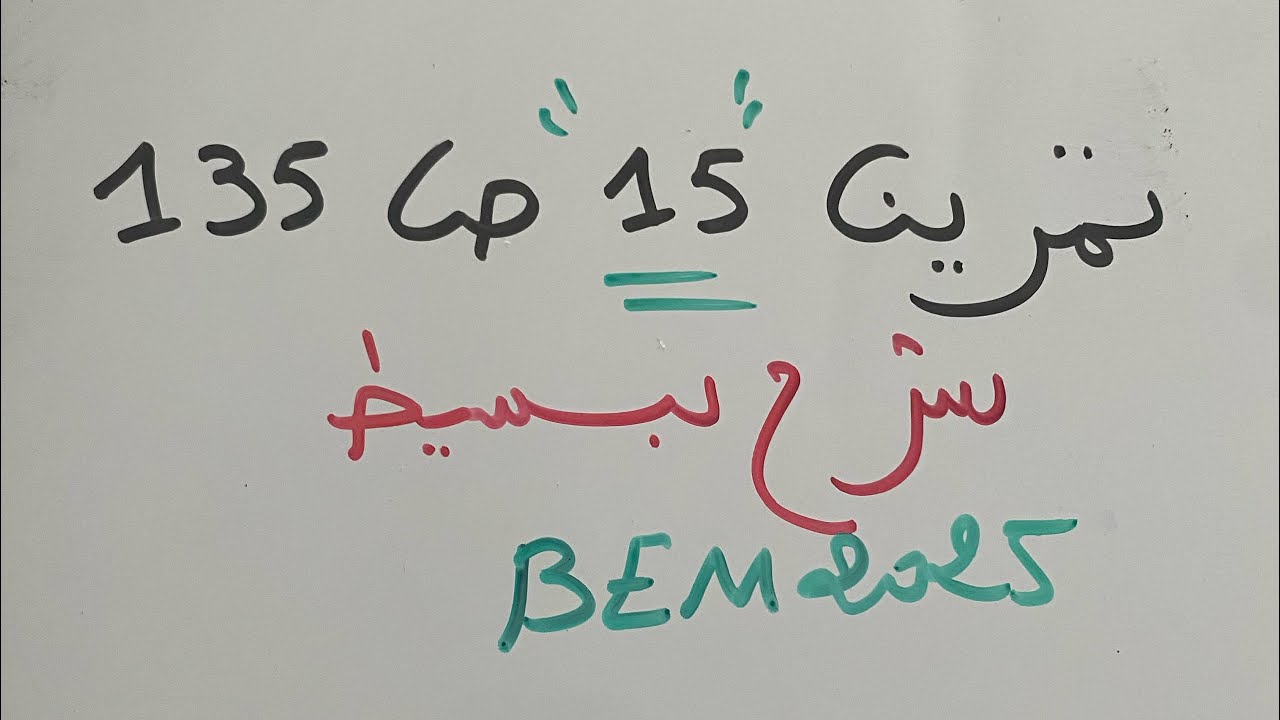 تمرين 15 ص 135
شرح بسيط
BEM 2025